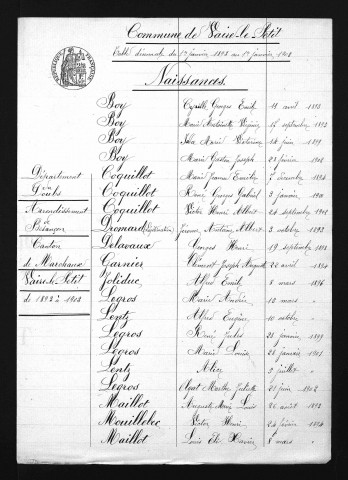 Commune de Vaire-le-Petit
Table décennale du 1er janvier 1893 au 1er janvier 1903
Naissances.
Boy Cyrille Georges Emile 11 avril 1895
Boy Marie Antoinette 17 septembre 1892
Boy Julia Marie Victorine 24 juin 1899
Boy Marie Gaston Joseph 22 février 1901
Département Coquillot Marie Jeanne 7 décembre 1894
du Doubs Coquillot René Georges Gabriel 3 janvier 1900
Arrondissement Coquillot Victor Henri Albert 24 septembre 1901
de Besançon Dromard Nicolas Albert 3 octobre 1893
Canton Delavaux Georges Henri 19 septembre 1893
de Marchaux Garnier Clément Joseph Auguste 22 avril 1894
Vaire-le-Petit Joliduc Alfred Emile 5 mars 1896
de 1893 à 1903 Legros Marie Andrée 12 mars "
Lentz Alfred Eugène 10 octobre "
Legros René Jules 21 janvier 1899
Legros Marie Louise 25 janvier 1901
Lentz Alice 2 juillet "
Legros Marthe Juliette 23 juin 1902
Maillot Auguste Marie Louis 26 août 1893
Mouillebec Victor Henri 24 février 1894
Maillot Louis 8 mars "